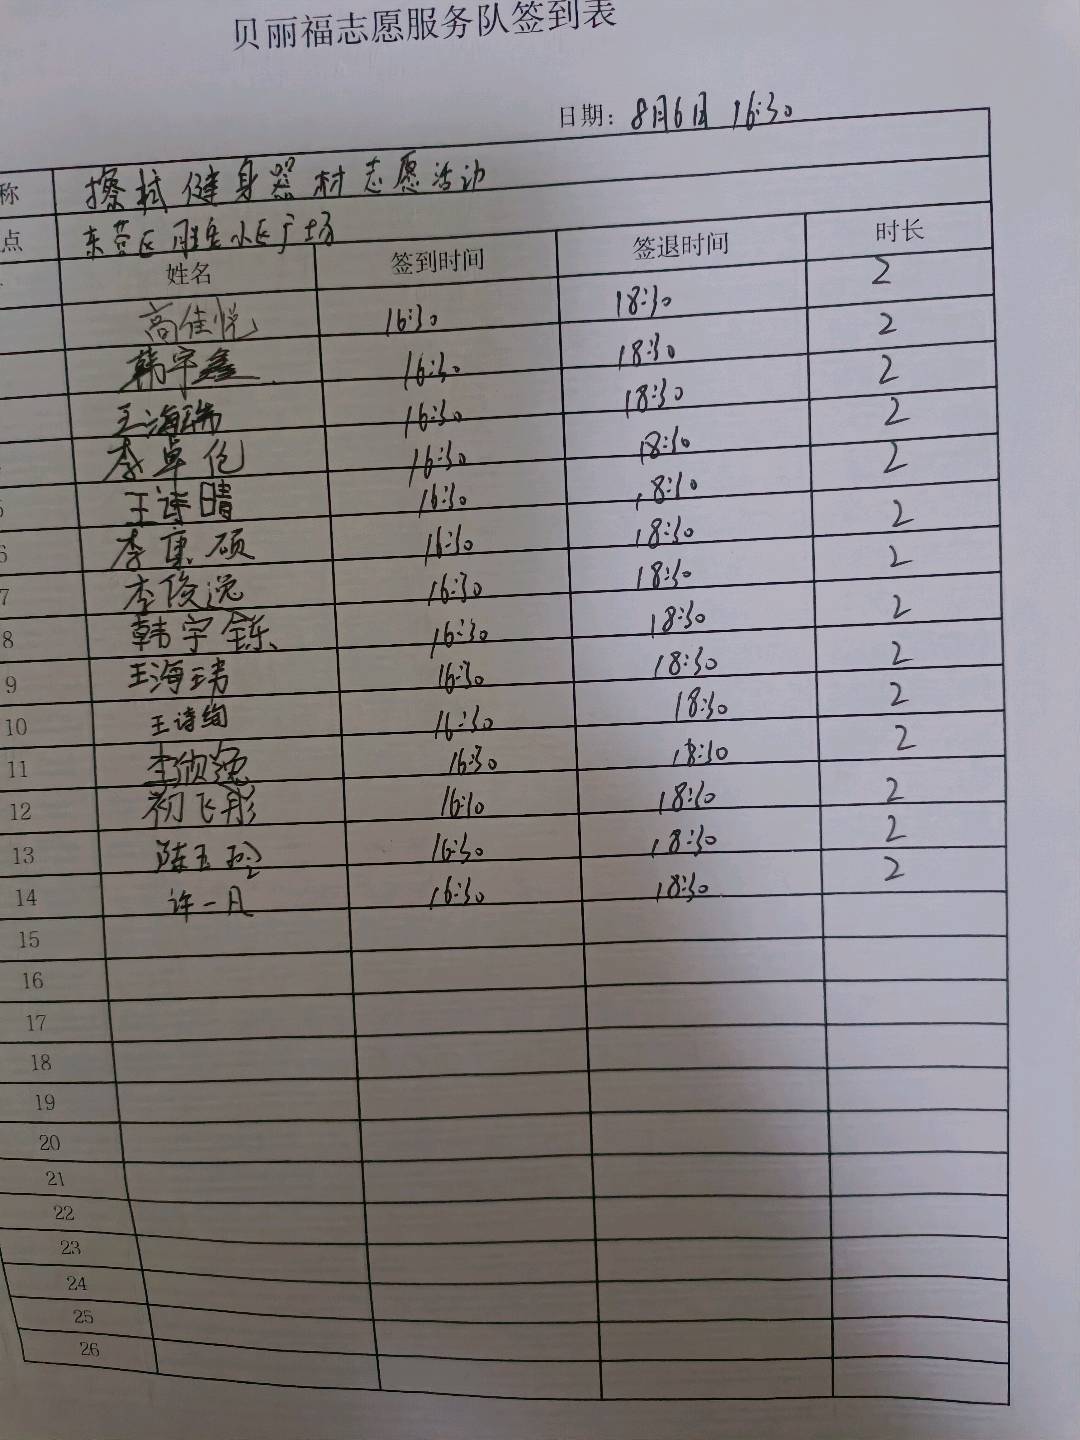 贝丽福志愿服务队签到表
日期: 8月6日 16:30
称 擦拭健身器材志愿活动
点 东营区胜宏小区广场
姓名 签到时间 签退时间 时长
高佳悦 16:30 18:30 2
韩宇鑫 16:30 18:30 2
王海瑞 16:30 18:30 2
李卓伦 16:30 18:30 2
5 王诗晴 16:30 18:30 2
6 李康硕 16:30 18:30 2
7 李俊逸 16:30 18:30 2
8 韩宇铄 16:30 18:30 2
9 王海玮 16:30 18:30 2
10 王诗绚 16:30 18:30 2
11 李逸 16:30 18:30 2
12 初飞彤 16:10 18:30 2
13 陈玉珍 16:30 18:30 2
14 许一凡 16:30 18:30 2
15
16
17
18
19
20
21
22
23
24
25
26